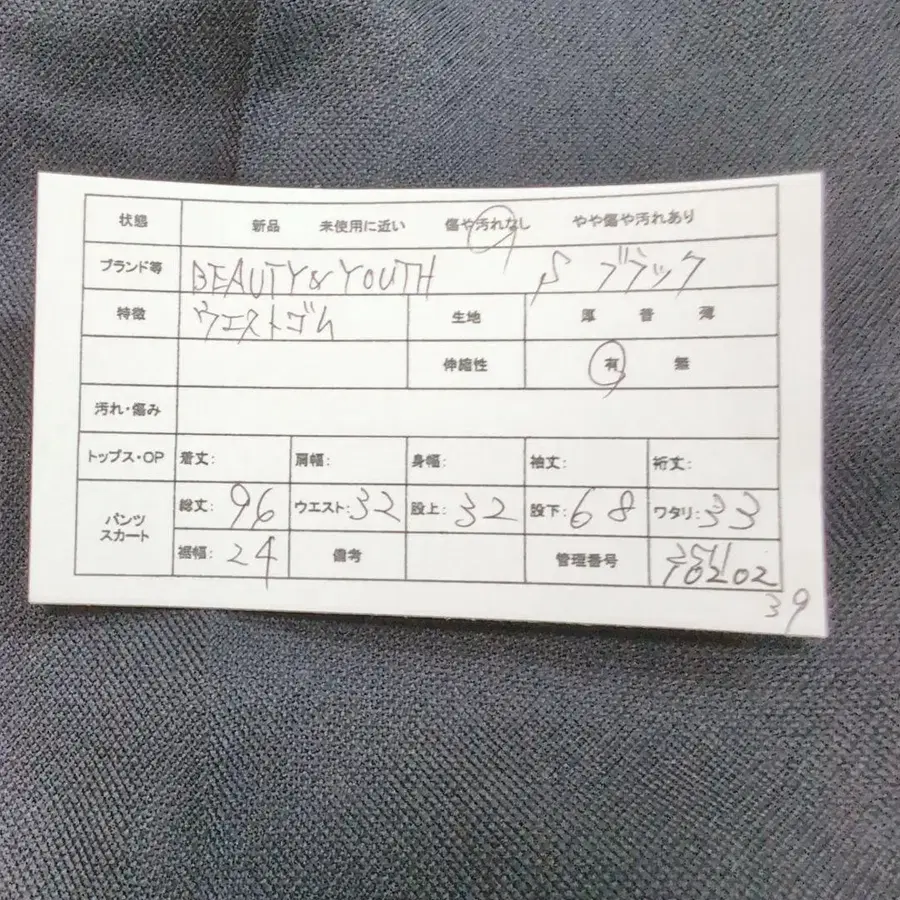 状態 新品 未使用に近い 傷や汚れなし やや傷や汚れあり
ブランド等 BEAUTY&YOUTH S ブラック
特徴 ウエストゴム 生地 厚 普 薄
伸縮性 有 無
汚れ・傷み
トップス・OP 着丈: 肩幅: 身幅: 袖丈: 裄丈:
パンツ スカート 総丈: 96 ウエスト: 32 股上: 32 股下: 68 ワタリ: 33
裾幅: 24 備考 管理番号
39